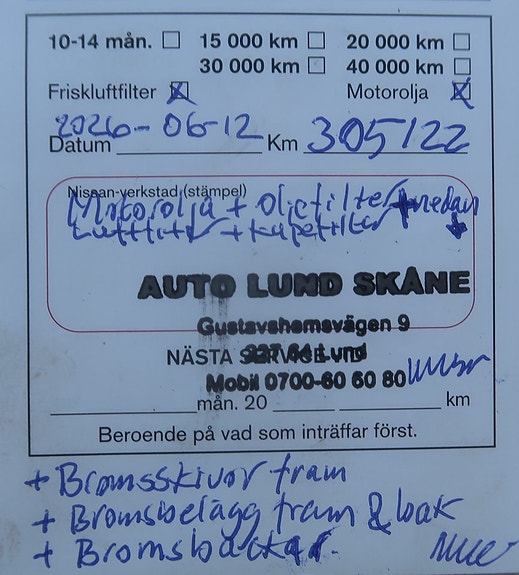 10-14 mån. 15 000 km 20 000 km
30 000 km 40 000 km
Friskluftfilter Motorolja
2026-06-12 305122
Datum Km
Nissan-verkstad (stämpel)
Motorolja + Oljefilter + nedan
Luftfilter + Kupefilter
AUTO LUND SKÅNE
Gustavshemsvägen 9
NÄSTA SERVICE
227 64 Lund
Mobil 0700-60 60 80
mån. 20 km
Beroende på vad som inträffar först.
+ Bromsskivor fram
+ Bromsbelägg fram & bak
+ Bromsbackar.